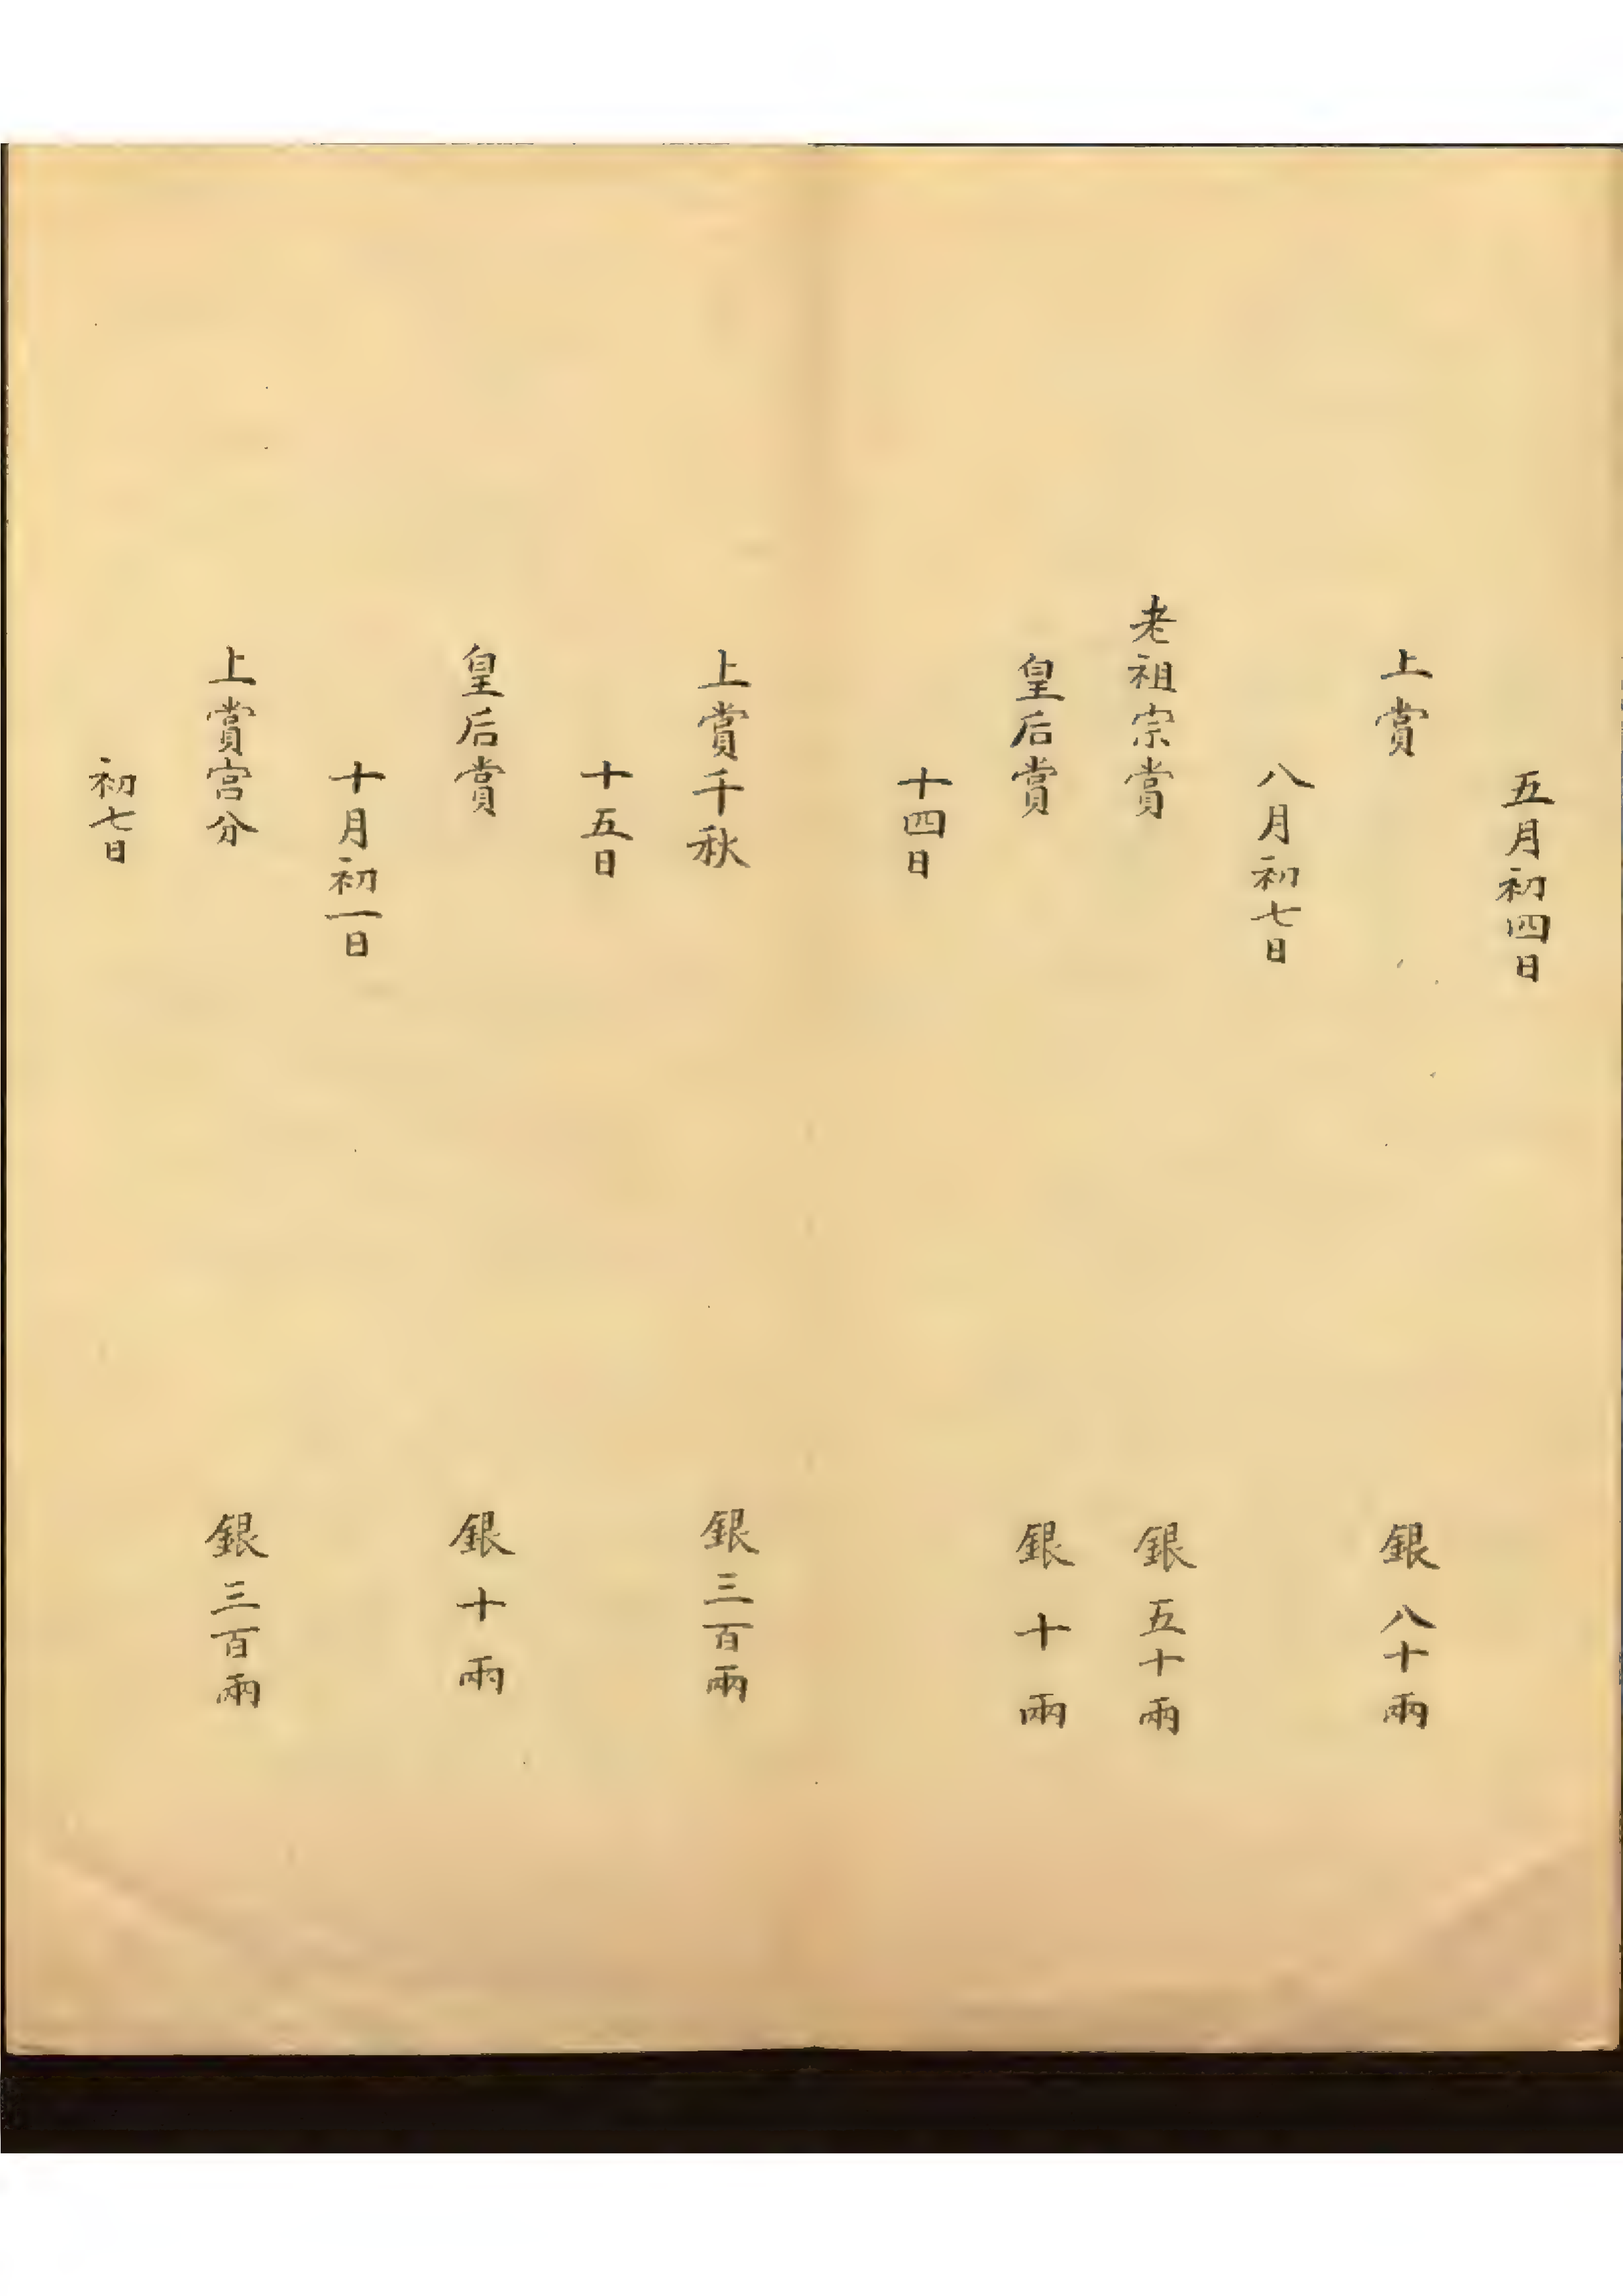 五月初四日
上賞 銀八十兩
八月初七日
老祖宗賞 銀五十兩
皇后賞 銀十兩
十四日
上賞千秋 銀三百兩
十五日
皇后賞 銀十兩
十月初一日
上賞宮分 銀三百兩
初七日